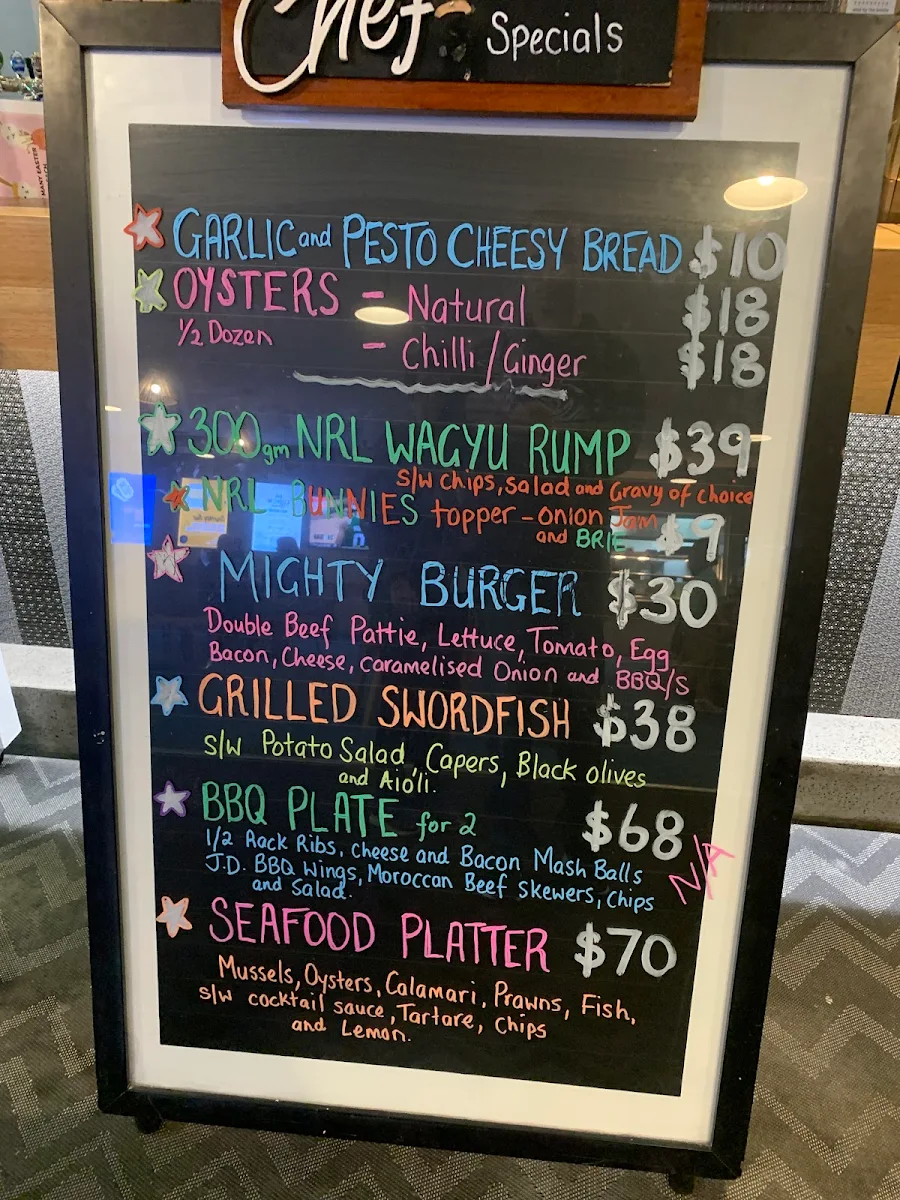 Chef
Specials
GARLIC and PESTO CHEESY BREAD $10
OYSTERS - Natural $18
1/2 Dozen - Chilli/Ginger $18
300gm NRL WAGYU RUMP $39
S/W Chips, Salad and Gravy of choice
NRL BUNNIES topper - onion Jam
and BRIE $9
MIGHTY BURGER $30
Double Beef Pattie, Lettuce, Tomato, Egg,
Bacon, Cheese, caramelised Onion and BBQ/S
GRILLED SWORDFISH $38
S/W Potato Salad, Capers, Black olives
and Aioli.
BBQ PLATE for 2 $68
1/2 Rack Ribs, cheese and Bacon Mash Balls
J.D. BBQ Wings, Moroccan Beef skewers, Chips
and Salad. N/A
SEAFOOD PLATTER $70
Mussels, Oysters, Calamari, Prawns, Fish,
S/W cocktail sauce, Tartare, Chips
and Lemon.